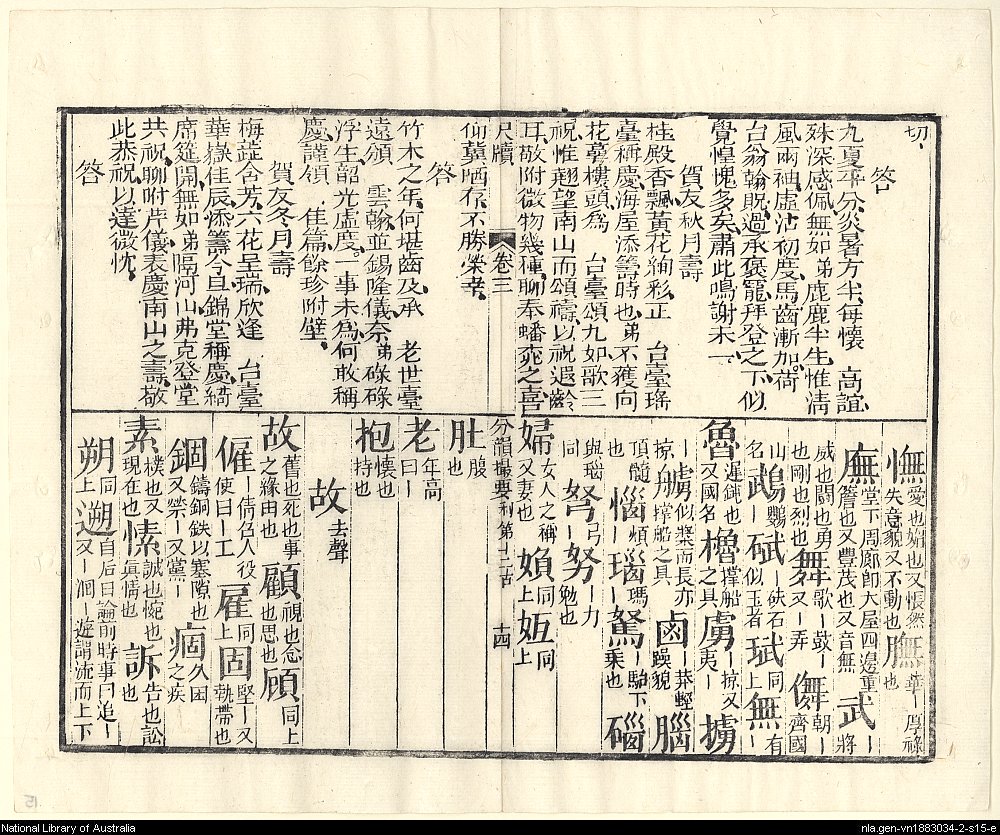 切、
答
九夏平分炎暑方半每懷　高誼
殊深感佩無如弟鹿鹿半生惟清
風兩袖虛沾初度馬齒漸加荷
台翁翰貺過承褒寵拜登之下似
覺惶愧多矣肅此鳴謝未一、
賀友秋月壽
桂殿香飄黃花絢彩正　台臺瑤
臺稱慶海屋添籌時也弟不獲向
花萼樓頭爲　台臺頌九如歌三
祝惟翹望南山而頌禱以祝遐齡
耳敬附微物幾種聊奉蟠桃之喜
尺牘　卷三
伯冀哂存不勝榮幸、
答
竹木之年何堪齒及承　老世臺
遠頒　雲翰並錫隆儀奈弟碌碌
浮生韶光虛度。一事未為何敢稱
慶謹領　佳篇餘珍附璧、
賀友冬月壽
梅蕋含芳六花呈瑞欣逢　台臺
華嶽佳辰添籌令旦錦堂稱慶綺
席筵開無如弟隔河山弗克登堂
共祝聊附芹儀表慶南山之壽敬
此恭祝以達微忱、
答
憮 愛也媚也又悵然失意貌又不動也 膴 華丨厚祿也
廡 堂下周廊即大屋四邊重簷也又豐茂也又音無 武 將丨
威也鬭也勇也剛也烈也 舞 歌丨鼓丨又丨弄 儛 朝丨齊國
山名 鵡 鸚丨 碔 丨砆石似玉者 珷 同上 無 有丨
魯 遲鈍也又國名 櫓 撐船之具 虜 丨掠又夷丨 擄
丨掠 艣 似槳而長亦撐船之具 鹵 丨莽輕躁貌 腦
頂髓也 惱 煩丨 瑙 瑪丨 駑 丨駘下乘也 磟
與瑙同 弩 弓丨 努 丨力勉也
婦 女人之稱又妻也 媍 同上 妚 同上
分韻撮要 利第十二古 十四
肚 腹也
老 年高曰丨
抱 懷也持也
故 去聲
故 舊也死也事之緣由也 顧 視也念也思也 頋 同上
僱 丨倩召人役使曰丨工 雇 同上 固 堅丨又執滯也
錮 鑄銅鉄以塞隙也又禁丨又黨丨 痼 久困之疾
素 樸也又現在也 愫 誠也悃也眞情也 訴 告也訟也
朔 同上 遡 自后曰論前時事曰追丨又丨洄丨遊謂流而上下
National Library of Australia
nla.gen-vn1883034-2-s15-e